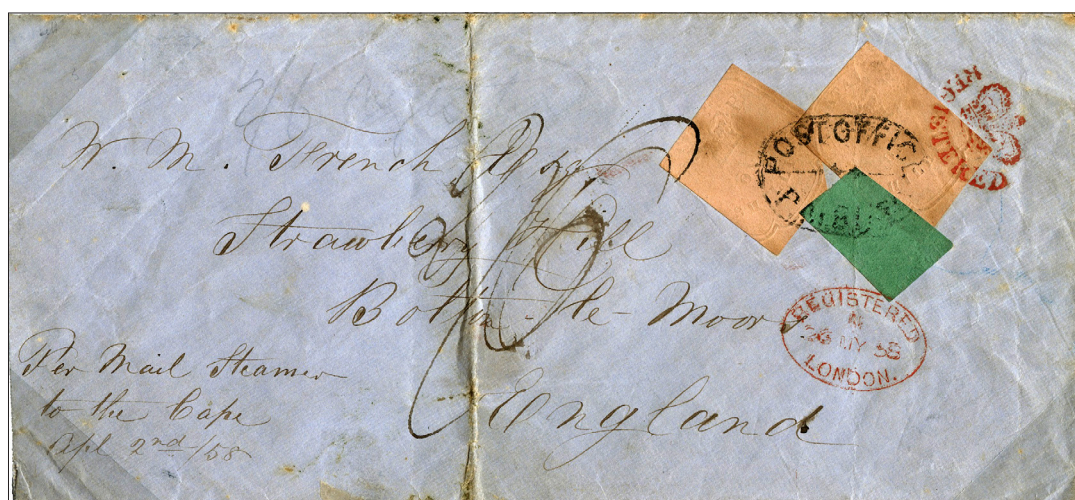 W. M. French Esqr
Strawberry Hill
Bolton-le-Moors
England
Per Mail Steamer
to the Cape
Apl 2nd /58
POST OFFICE
REGISTERED
REGISTERED
MY 58
LONDON.